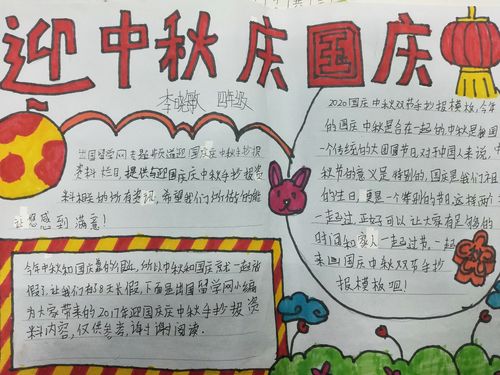 迎中秋庆国庆
李晓敏 四年级
出国留学网专题频道迎国庆庆中秋手抄报
资料栏目,提供与迎国庆庆中秋手抄报资
料相关的所有资讯,希望我们所做的能
让您感到满意!
今年中秋和国庆靠的很近,所以中秋和国庆就一起放
假了,让我们有了8天长假,下面是出国留学网小编
为大家带来的2017年迎国庆庆中秋手抄报资
料内容,仅供参考,谢谢阅读.
2020国庆中秋双节手抄报模板,今年
的国庆中秋是合在一起的,中秋是我国
一个传统的大团圆节日,对于中国人来说,中
秋节的意义是特别的,国庆是我们祖
的生日,更是一个特别的节,这样两
一起过,正好可以让大家有足够的
时间和家人一起过节,一起
来画国庆中秋双节手抄
报模板吧!